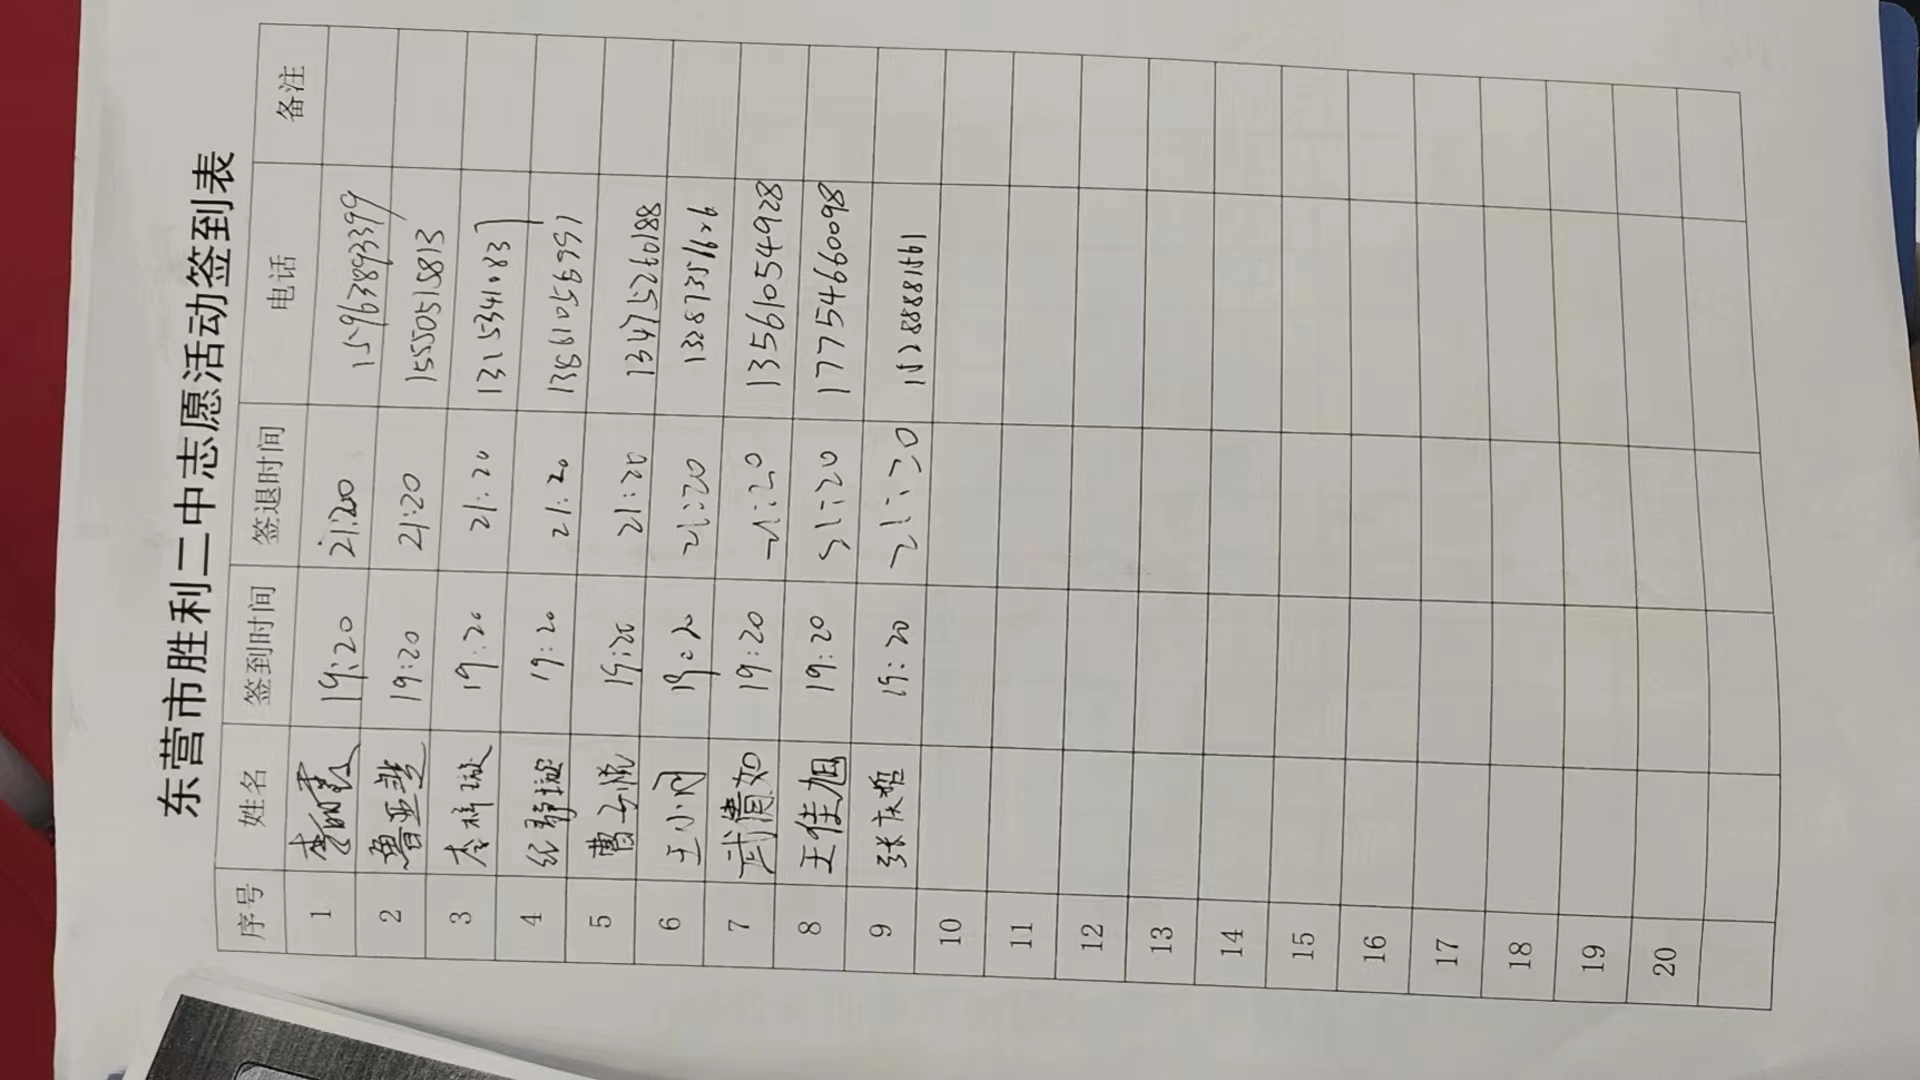 东营市胜利二中志愿活动签到表
序号 姓名 签到时间 签退时间 电话 备注
1 19:20 21:20 15963893399
2 鲁亚 19:20 21:20 15550515813
3 李梓璇 19:20 21:20
4 纪静璇 19:20 21:20 13861056991
5 曹子悦 19:20 21:20 13475226088
6 王小 19:20 21:20
7 武倩如 19:20 21:20 13561054928
8 王佳旭 19:20 21:20 17754660098
9 张庆哲 19:20 21:20
10
11
12
13
14
15
16
17
18
19
20